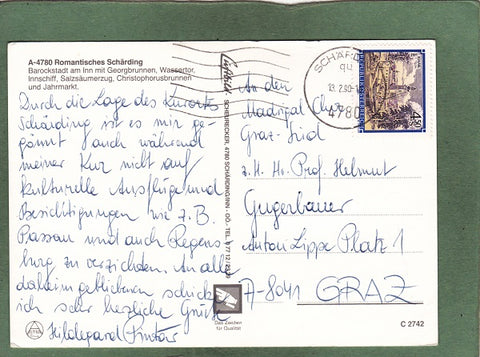 A-4780 Romantisches Schärding
Barockstadt am Inn mit Georgbrunnen, Wassertor,
Innschiff, Salzsäumerzug, Christophorusbrunnen
und Jahrmarkt.
Durch die Lage des Kurorts
Schärding ist es mir ge-
gönnt auch während
meiner Kur nicht auf
kulturelle Ausflüge und
Besichtigungen wie z. B.
Passau und auch Regens-
burg zu verzichten. An alle
daheim gebliebenen schicke
ich sehr herzliche Grüße
Hildegard
Das Zeichen
für Qualität
SCHÄRDING
4780
4.50
An den
Madrigal Chor
Graz-Süd
z. H. Hr. Prof. Helmut
Gugerbauer
Anton Lippe Platz 1
A-8041 GRAZ
C 2742